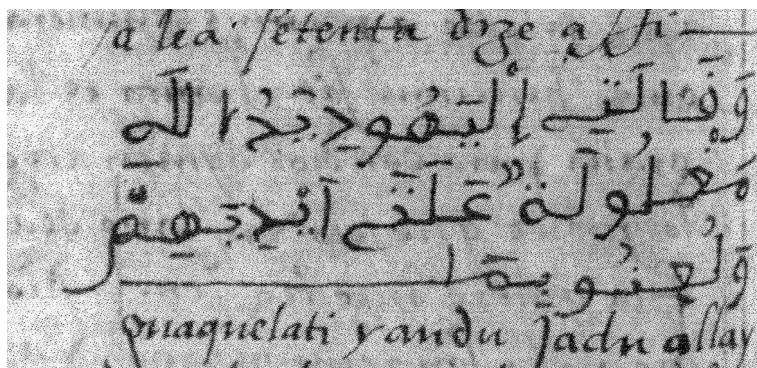 setenta dize assi
وَقَالَتِي إلْيَهُودِ يَدُ ا اللَّهِ
مَعلُولَة عَلَتِي اَيْدِيَهِمْ
وَلُعِنُوبِمَا
ouaquelati yaudu jadu allay